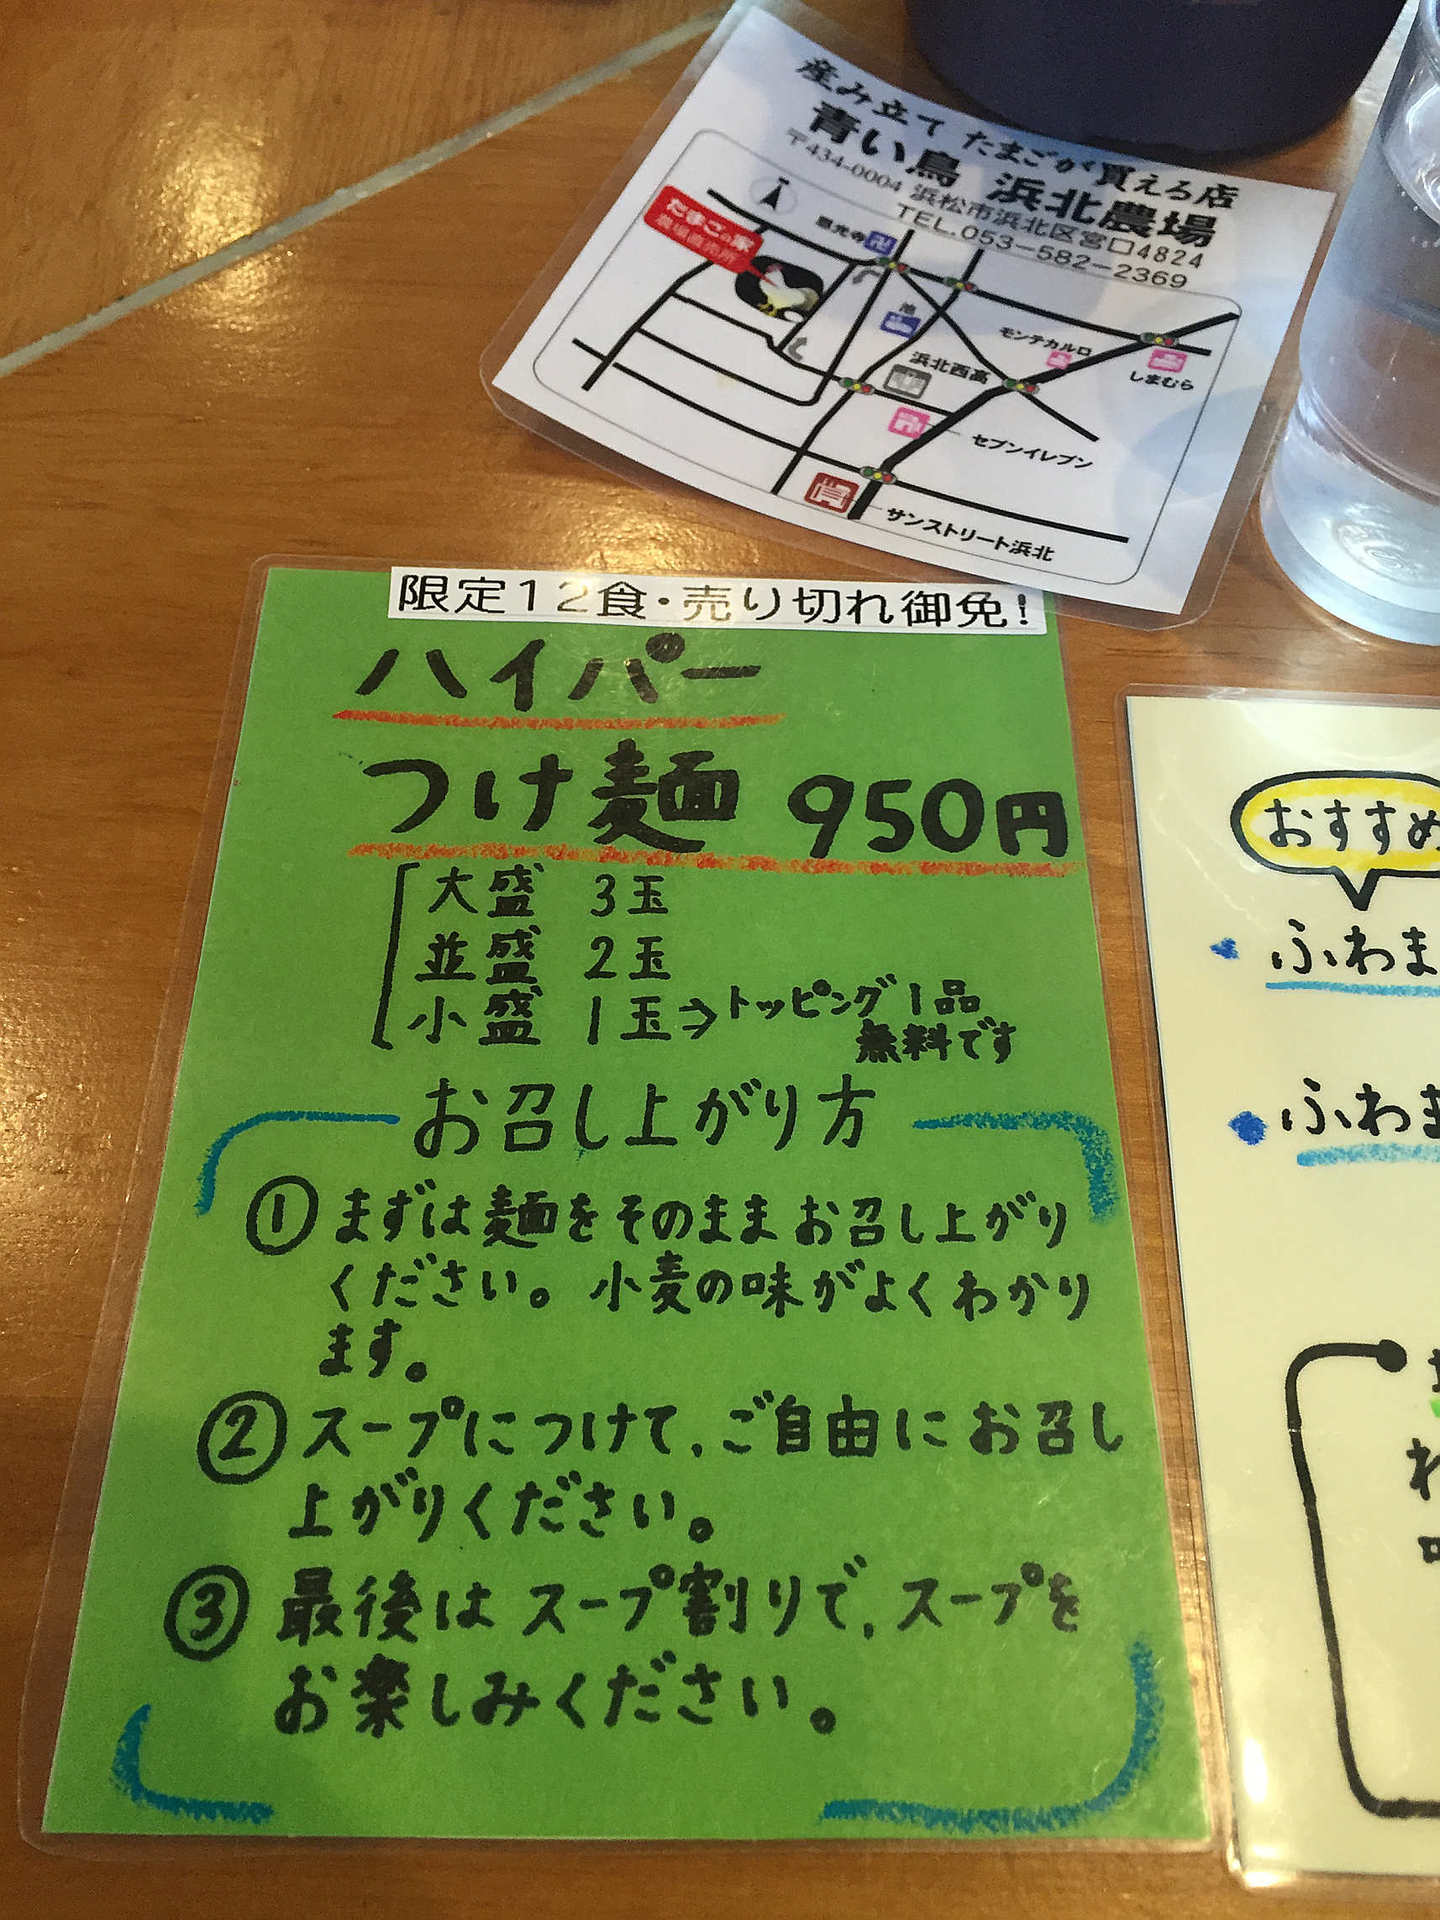 産み立て たまごが買える店
青い鳥 浜北農場
〒434-0004 浜松市浜北区宮口4824
TEL.053-582-2369
たまごの家
農場直売所
池
モンテカルロ
しまむら
浜北西高
セブンイレブン
サンストリート浜北
限定12食・売り切れ御免!
ハイパー
つけ麺 950円
大盛 3玉
並盛 2玉
小盛 1玉⇒トッピング1品
無料です
お召し上がり方
① まずは麺をそのままお召し上がり
ください。小麦の味がよくわかり
ます。
② スープにつけて、ご自由にお召し
上がりください。
③ 最後はスープ割りで、スープを
お楽しみください。
おすすめ
ふわま
ふわま